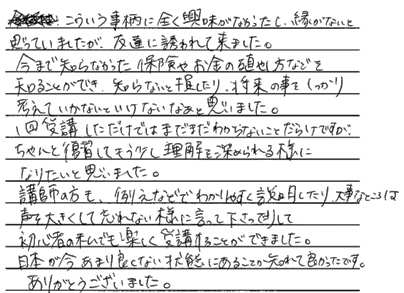 こういう事柄に全く興味がなかったし、縁がないと
思っていましたが、友達に誘われて来ました。
今まで知らなかった保険やお金の頭や仕方などを
知ることができ、知らないと損したり、将来の事をしっかり
考えていかないといけないなぁと思いました。
1回受講しただけではまだまだわからないことだらけですが、
ちゃんと復習してもう少し理解を深められる様に
なりたいと思いました。
講師の方も、例えなどでわかりやすく説明したり、大事なところは
声を大きくして忘れない様に言って下さったりして
初心者の私でも楽しく受講することができました。
日本が今あまり良くない状態にあることが知れて良かったです。
ありがとうございました。